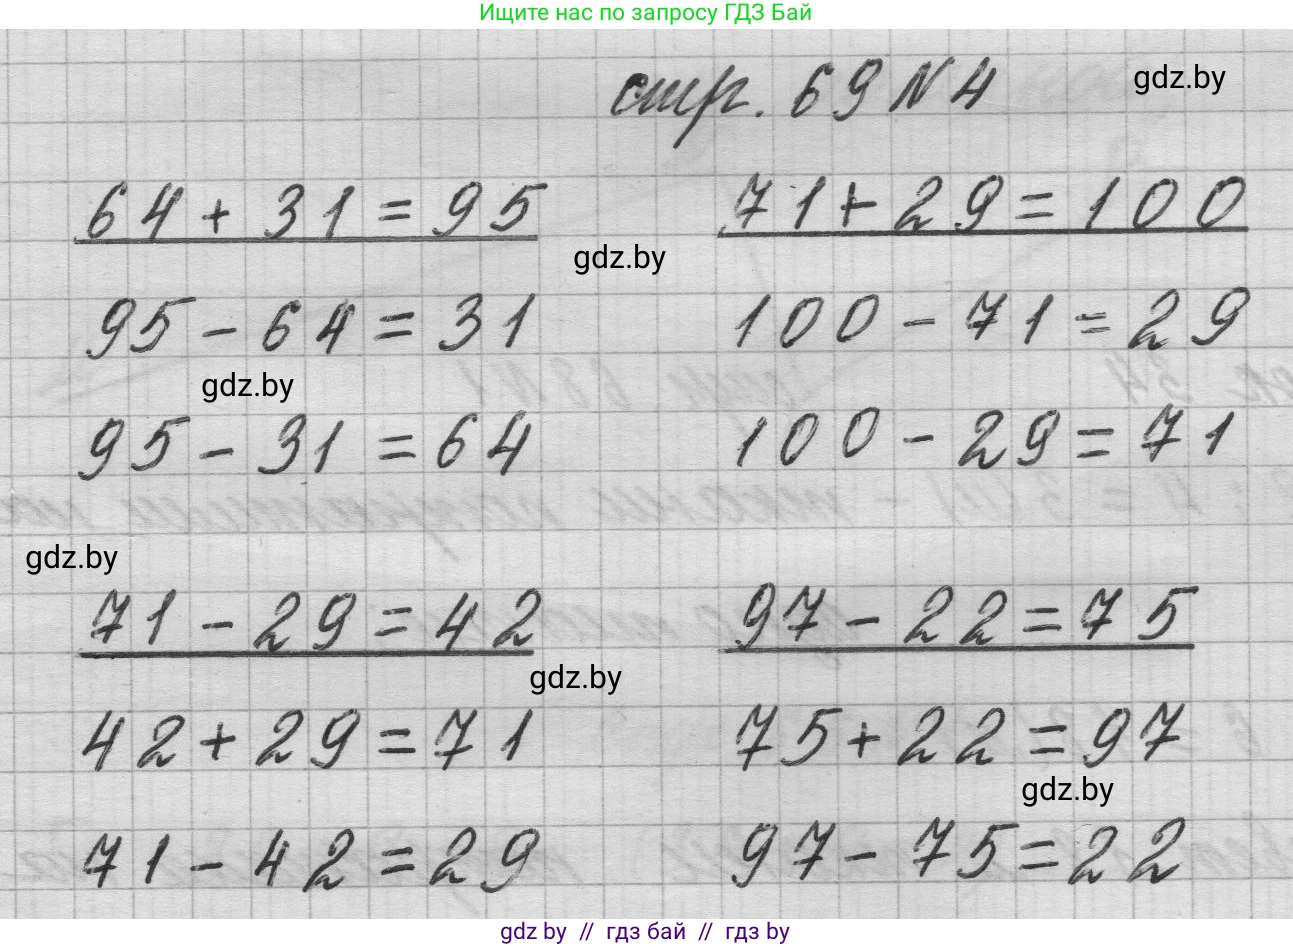 Ищите нас по запросу ГДЗ Бай
стр. 69 № 4
gdz.by
64 + 31 = 95
71 + 29 = 100
gdz.by
95 - 64 = 31
100 - 71 = 29
gdz.by
95 - 31 = 64
100 - 29 = 71
gdz.by
71 - 29 = 42
97 - 22 = 75
gdz.by
42 + 29 = 71
75 + 22 = 97
gdz.by
71 - 42 = 29
97 - 75 = 22
gdz by // гдз бай // гдз by